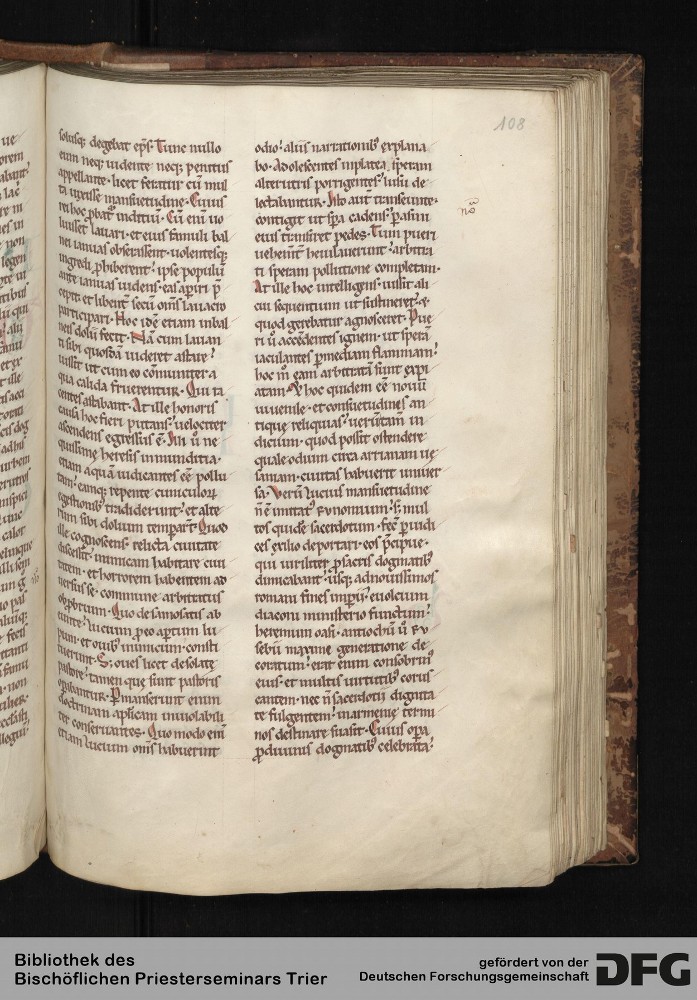 108
solusq; degebat ep̄s. Tunc nullo
eum neq; uidente neq; penitus
appellante. licet feratur cū mul
ta uixisse mansuetudine. Cuius
rei hoc ꝓbat᷑ indiciū. Cū eni uo
luisset lauari. et eius famuli bal
nei ianuas obserassent. uolentesq;
ingredi ꝓhiberent. ipse populū
ante ianuas uidens. eas aꝑiri p̄
cepit. et libenter secū om̄s lauacro
participari. Hoc idē etiam in bal
neis dolū fecit. Nā cum lauan
ti sibi quosdā uideret astare.
iussit ut cum eo cōmuniter a
qua calida fruerentur. Qui ta
centes astabant. At ille honoris
causa hoc fieri putans. uelociter
ascendens egressus ē. Illi ū ne
quissime heresis inmunditia.
etiam aquā iudicantes eē pollu
tam. eamq; repente cuniculoꝝ
egestionibꝰ tradiderunt. et alte
ram sibi dolium temꝑart̄. Quod
ille cognoscens. relicta ciuitate
discessit. inimicam habitare ciui
tatem. et horrorem habentem ad
uersus se. commune arbitratus
obꝓbrium. Quo de samosatis ab
eunte. lucium ꝓ eo aꝑtum lu
pum. et ouibꝰ inimicum. consti
tuerunt. S; oues licet desolatę
pastore. tamen quę sunt pastoris
oꝑabantur. Ꝑmanserunt enim
doctrinam aplicam inuiolabili
ter conseruantes. Quo modo eni
etiam lucium om̄s habuerint
odio. aliis narrationibꝰ explana
bo. Adolescentes in platea speram
alterutris porrigentes. lusu de
lectabantur. Illo aut transeunte.
contigit ut spera cadens. ꝑ asini
eius transiret pedes. Tum pueri
uehement̄ heiulauerunt. arbitra
ti speram pollutione completam.
At ille hoc intelligens. iussit ali
cui sequentium ut sustineret. et
quod gerebatur agnosceret. Pue
ri ū accendentes ignem. ut sperā
iaculantes ꝑ mediam flammam.
hoc m̊ eam arbitrati sunt expi
atam. Et hoc quidem eē nouū
iuuenile. et consuetudines an
tique reliquias. uerūtam in
dicium. quod possit ostendere
quale odium circa arrianam ue
saniam. ciuitas habuerit uniuer
sa. Verū lucius mansuetudinē
n̄ ē imitatꝰ eunomium. s; mul
tos quidē sacerdotum. fec̄ ꝑ iudi
ces exilio deportari. eos p̄cipue.
qui uiriliter ꝓ sacris dogmatibꝰ
dimicabant. usq; ad nouissimos
romani fines imperii. euolcium
diaconi ministerio functum.
heremium oasi. antiochū ū eu
sebii maxime generatione de
coratum. erat enim consobrinꝰ
eius. et multis uirtutibꝰ corus
cantem. nec n̄ sacerdotii dignita
te fulgentem. in armenię termi
nos destinare suasit. Cuius opa
ꝓ diuinis dogmatibꝰ celebrata.
nō
Bibliothek des
Bischöflichen Priesterseminars Trier
gefördert von der
Deutschen Forschungsgemeinschaft
DFG